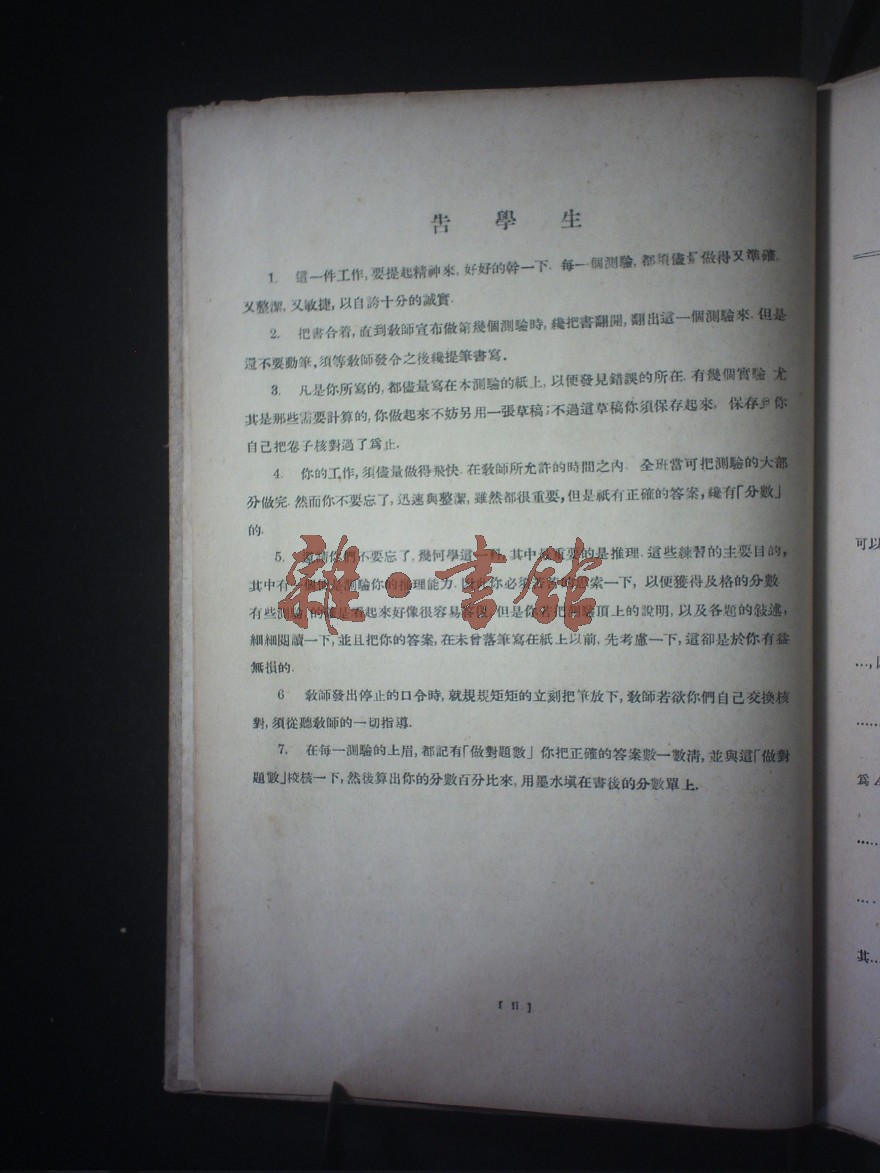 告學生
1. 這一件工作,要提起精神來,好好的幹一下. 每一個測驗,都須儘 做得又準確.
又整潔,又敏捷,以自誇十分的誠實.
2. 把書合着,直到敎師宣布做第幾個測驗時,纔把書翻開,翻出這一個測驗來.但是
還不要動筆,須等敎師發令之後纔提筆書寫.
3. 凡是你所寫的,都儘量寫在本測驗的紙上,以便發見錯誤的所在.有幾個實驗 尤
其是那些需要計算的,你做起來不妨另用一張草稿;不過這草稿你須保存起來, 保存 你
自己把卷子核對過了爲止.
4. 你的工作,須儘量做得飛快.在敎師所允許的時間之內. 全班當可把測驗的大部
分做完.然而你不要忘了,迅速與整潔,雖然都很重要,但是祇有正確的答案,纔有「分數」
的.
5. 你們不要忘了,幾何學這一科,其中最重要的是推理.這些練習的主要目的,
其中有一個便是測驗你的推理能力.因此你必須 思索一下,以便獲得及格的分數
有些測驗,的確是看起來好像很容易答復,但是你若把測驗頂上的說明,以及各題的敍述,
細細閱讀一下,並且把你的答案,在未曾落筆寫在紙上以前,先考慮一下,這卻是於你有益
無損的.
6 敎師發出停止的口令時,就規規矩矩的立刻把筆放下,敎師若欲你們自己交換核
對,須從聽敎師的一切指導.
7. 在每一測驗的上眉,都記有「做對題數」你把正確的答案數一數淸,並與這「做對
題數」校核一下,然後算出你的分數百分比來,用墨水塡在書後的分數單上.
[ ii ]
雜·書館
可以
…,
爲
其…